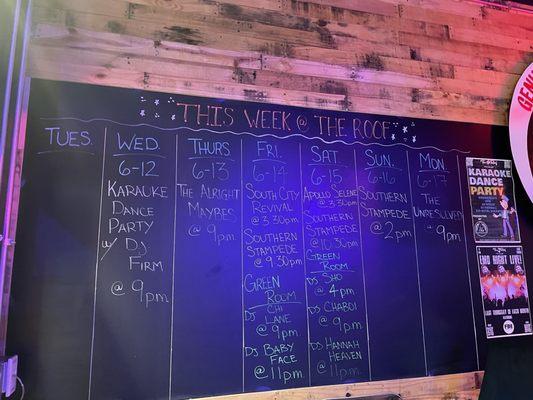 THIS WEEK @ THE ROOF
TUES.
WED.
6-12
KARAOKE
DANCE
PARTY
w/ DJ
FIRM
@ 9pm
THURS
6-13
THE ALRIGHT
MAYBES
@ 9pm
FRI.
6-14
SOUTH CITY
REVIVAL
@ 3:30pm
SOUTHERN
STAMPEDE
@ 9:30pm
GREEN
ROOM
CHI
LANE
@ 9pm
DJ BABY
FACE
@ 11pm
SAT.
6-15
APOLLO SELENE
@ 3:30pm
SOUTHERN
STAMPEDE
@ 10:30pm
GREEN
ROOM
DJ SHO
@ 4pm
DJ CHABDI
@ 9pm
DJ HANNAH
HEAVEN
@ 11pm
SUN.
6-16
SOUTHERN
STAMPEDE
@ 2pm
MON
6-17
THE
UNRESOLVED
@ 9pm
KARAOKE
DANCE
PARTY
IND NIGHT
LIVE!
GENU